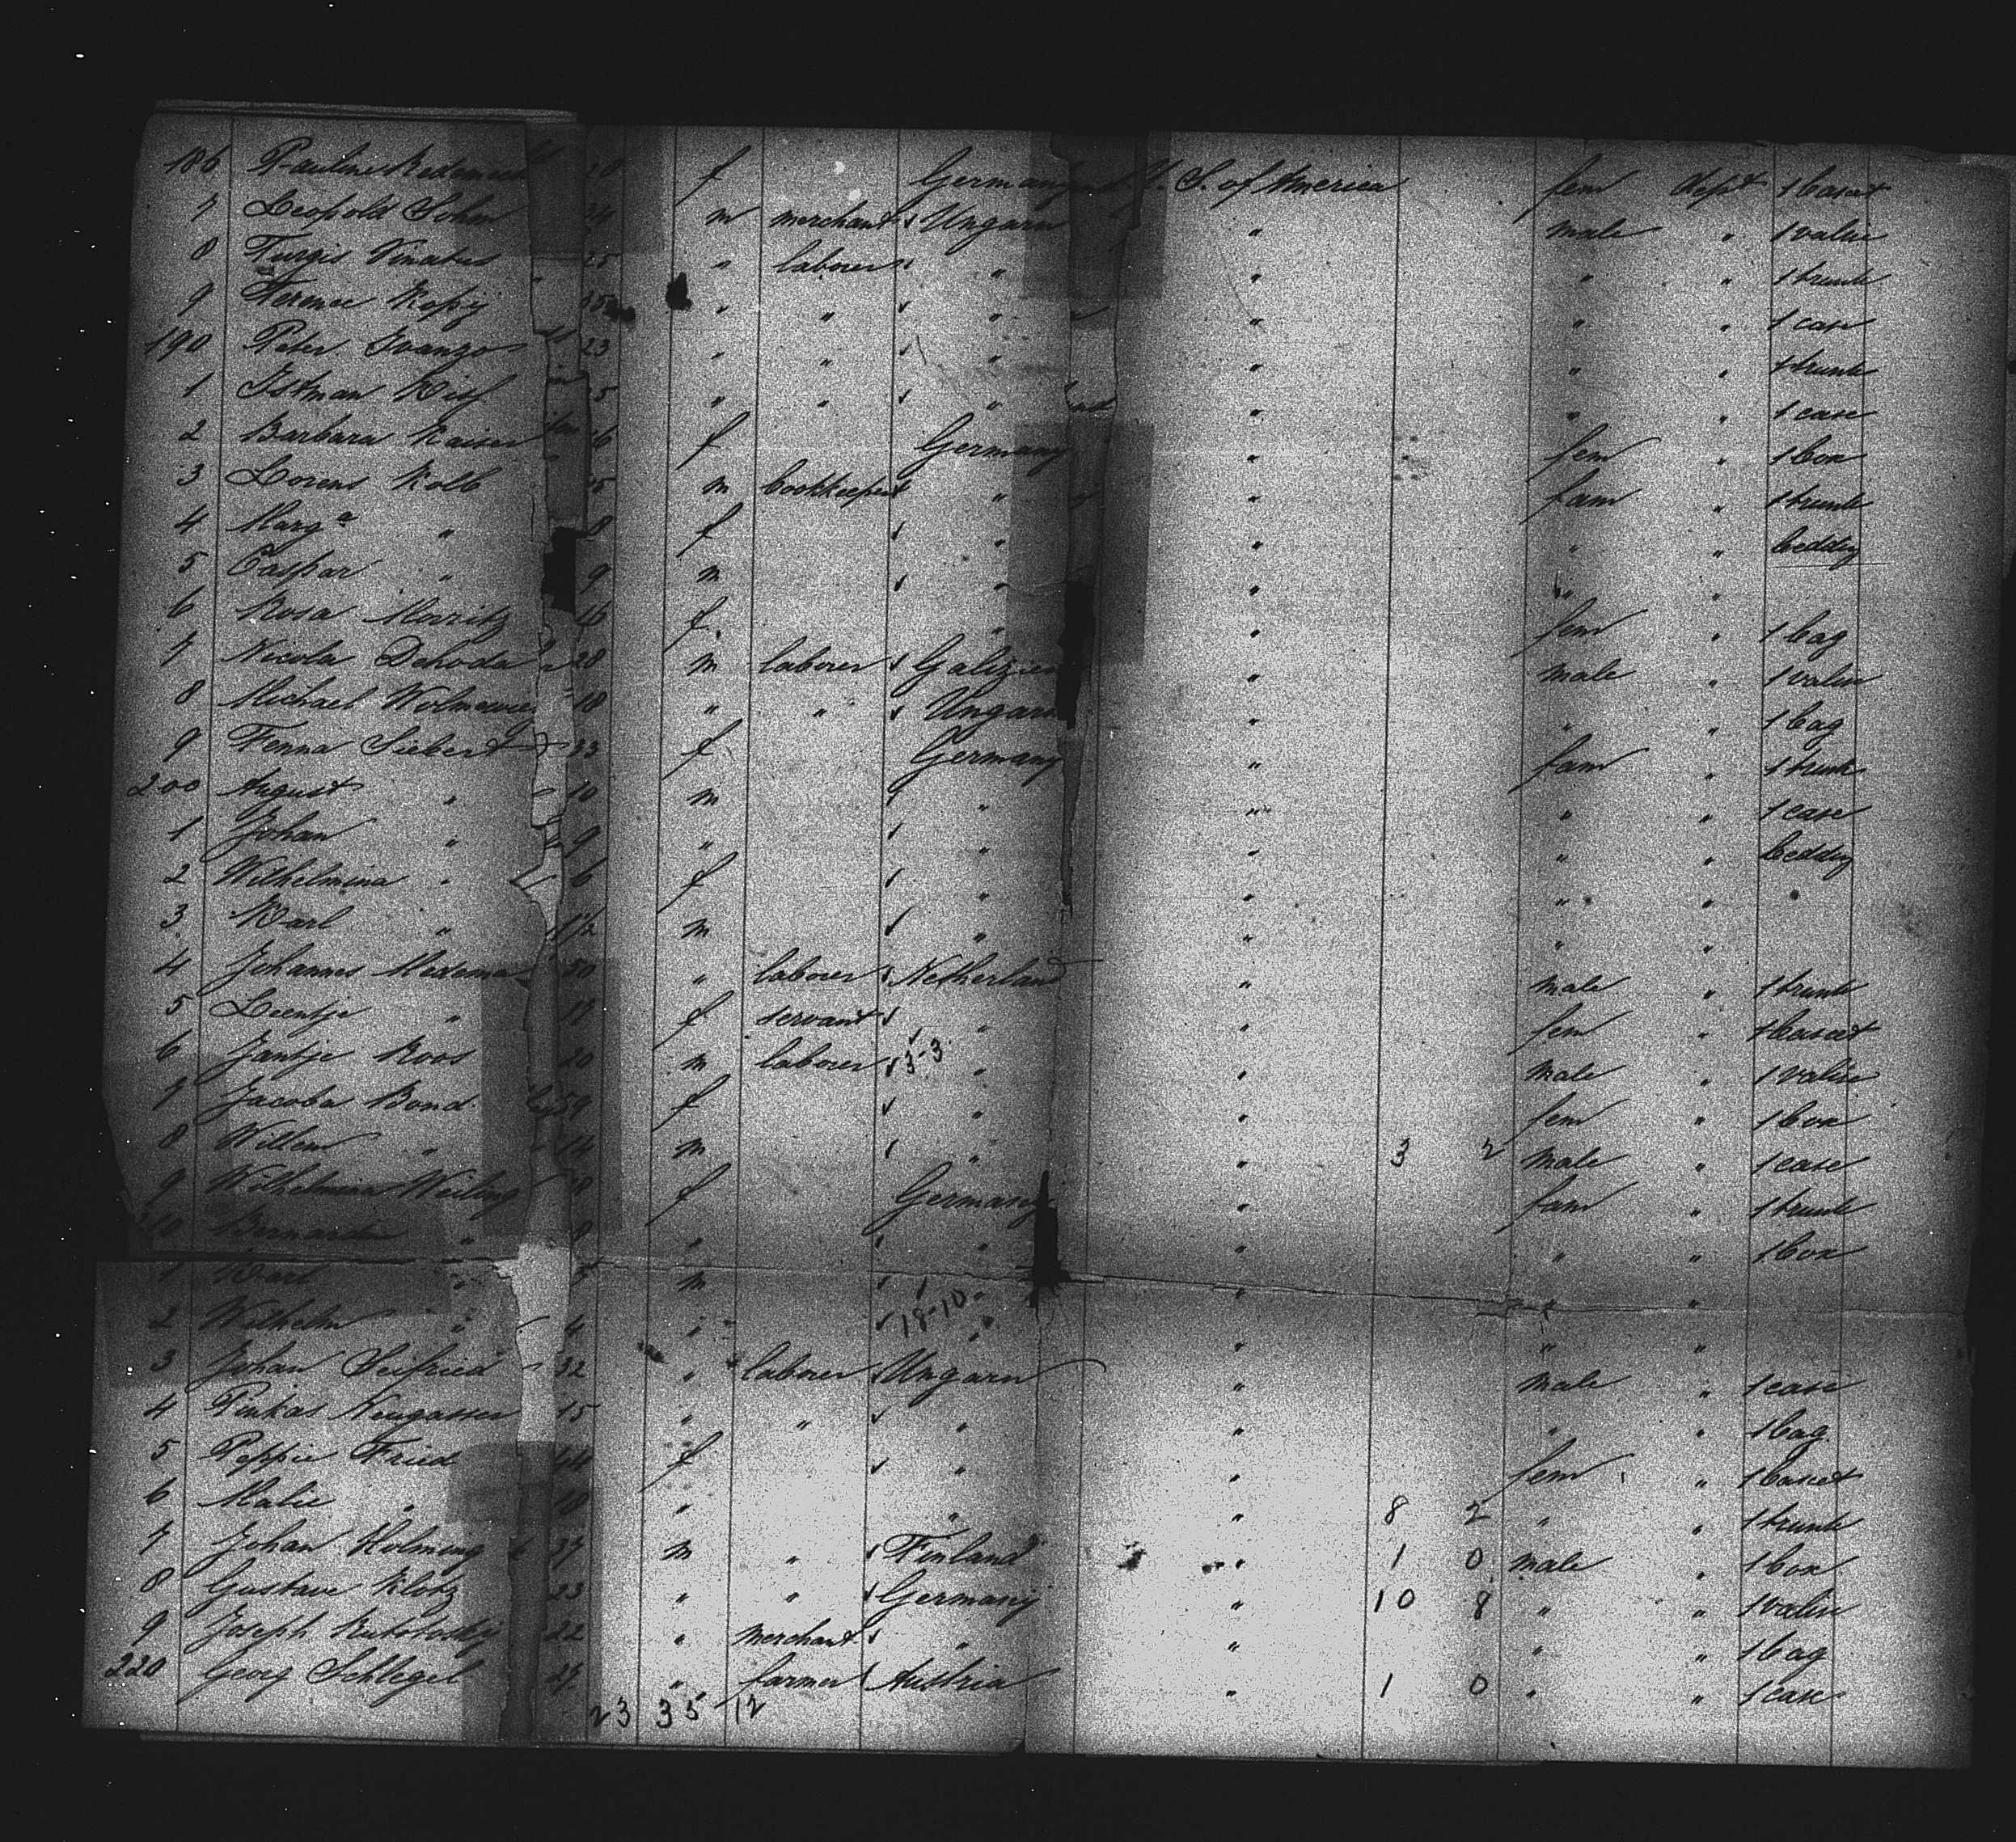 186 Pauline 28 f Germany U. S. of America fem dept 1 bascet
7 Leopold Sohn 24 m merchant Ungarn " male " 1 valise
8 Furgis Vinates 25 " laborer " " " " 1 trunk
9 Ferencz 35 " " " " " " 1 case
190 Peter Ivango 23 " " " " " " 1 trunk
1 Istman 5 " " " " " " 1 case
2 Barbara Kaiser 16 f Germany " fem " 1 box
3 Lorens Kolb 25 m bookkeeper " " fam " 1 trunk
4 Marg a " 8 f " " " " bedding
5 Caspar " 9 m " " " "
6 Rosa Morritz 16 f " " fem " 1 bag
7 Nicola Dehoda 28 m laborer Galizien " male " 1 valise
8 Michael 18 " " Ungarn " " " 1 bag
9 Fenna Siebert 33 f Germany " fam " 1 trunk
200 August " 10 m " " " " 1 case
1 Johan " 9 " " " " " bedding
2 Wilhelmina " 6 f " " "
3 Karl " 1/2 m " " " "
4 Johannes Medema 50 " laborer Netherland " male " 1 trunk
5 Leentje " 17 f servant " " fem " 1 bascet
6 Jantje Koos 20 m laborer 5-3 " " male " 1 valise
7 Jacoba Bond 59 f " " fem " 1 box
8 Willem " 14 m " " 3 2 male " 1 case
9 Wilhelmina Weiling 8 f Germany " fam " 1 trunk
210 Bernardine " 8 " " " " " 1 box
1 Karl " 5 m " " " "
2 Wilhelm " 4 " 18-10 " " " "
3 Johan Seifried 32 " laborer Ungarn " male " 1 case
4 Pinkas Neugasser 15 " " " " " " 1 bag
5 Peppie Fried 44 f " " fem " 1 bascet
6 Malie " 18 " " " 8 2 " " 1 trunk
7 Johan Holmeng 27 m " Finland " 1 0 male " 1 box
8 Gustave Klotz 23 " " Germany " 10 8 " " 1 valise
9 Joseph 22 " merchant " " " " 1 bag
220 Georg Schlegel 27 " farmer Austria " 1 0 " " 1 case
23 35 12